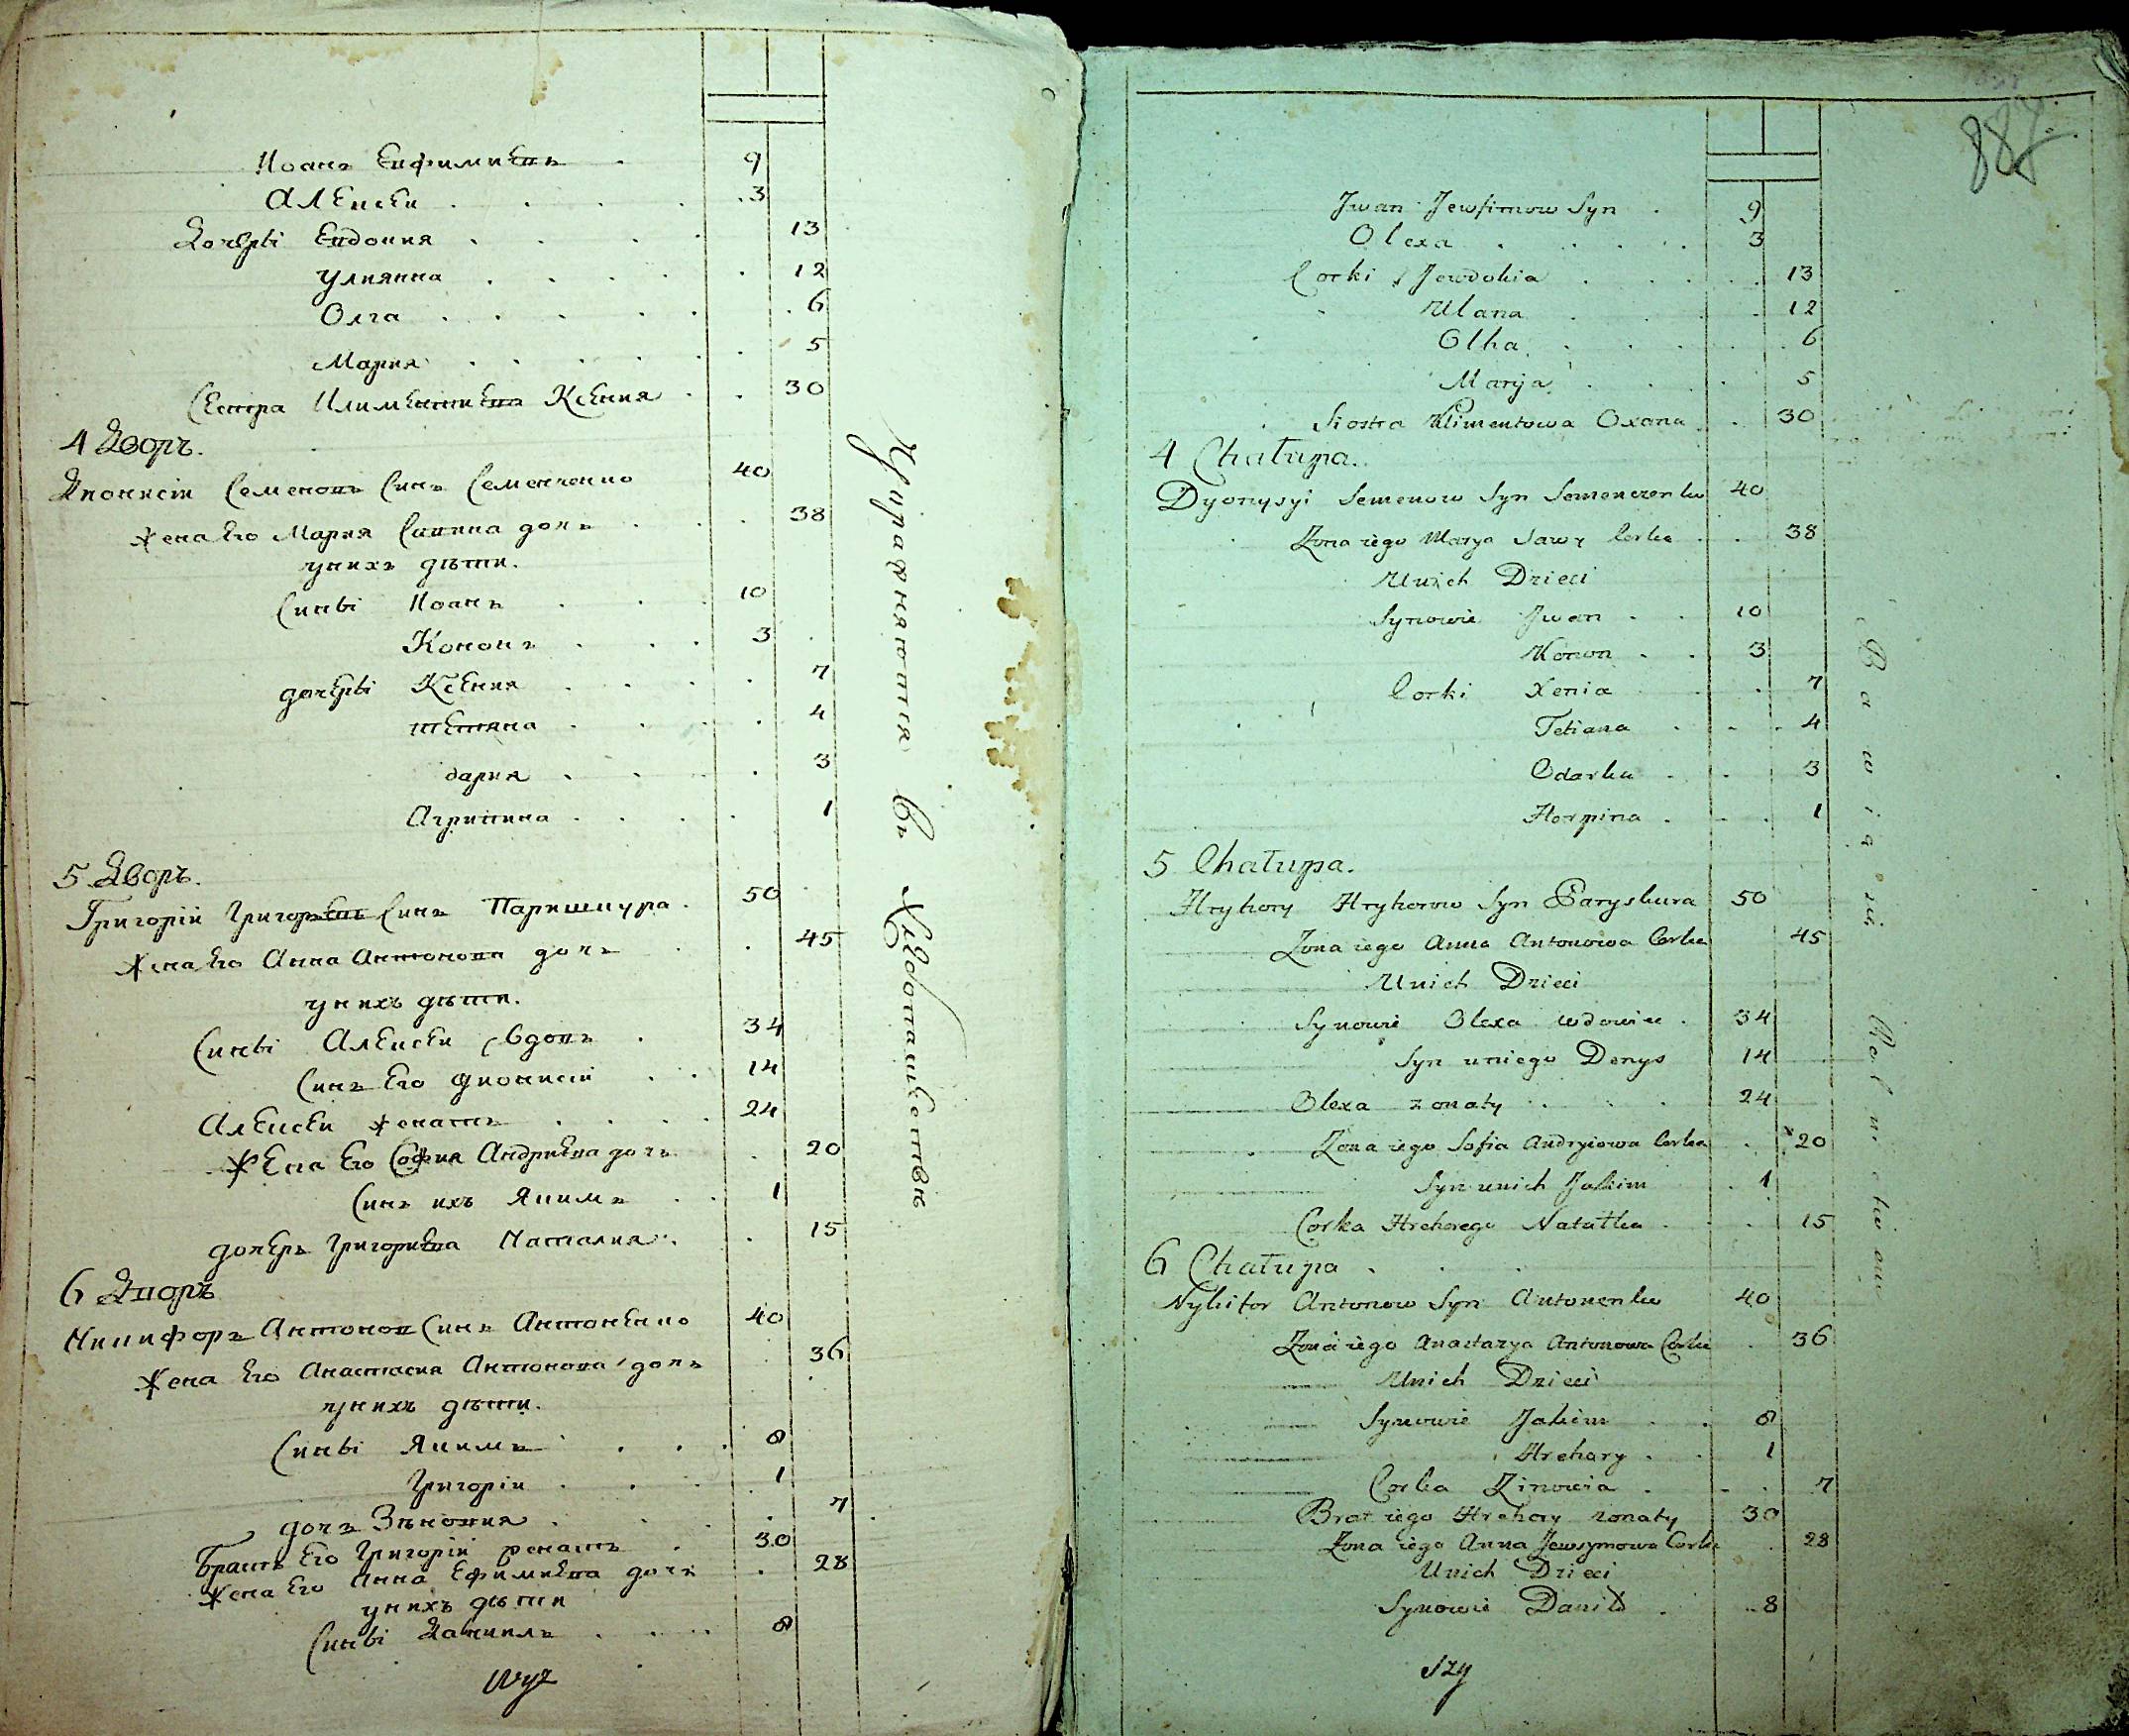 Иоанъ Евфимиевъ . 9
Алексеи . . . . 3
Дочерѣ Евдокия . . . . 13
Улиянна . . . . 12
Олга . . . . . 6
Мария . . . . . 5
Сестра Климентиева Ксения . . 30
4 Дворъ.
Дионисіи Семеновъ Синъ Семенченко 40
Жена Его Мария Савина дочь . . 38
у нихъ дѣти.
Сины Иоанъ . . . 10
Кононъ . . . 3
дочеры Ксения . . . . 7
тетяна . . . . 4
дария . . . . 3
Агрипина . . . . . 1
5 Дворъ.
Григорій Григоревъ Синъ Паришкура . 50
Жена Его Анна Антонова дочь . . 45
у нихъ дѣти.
Сины Алексеи вдовъ . 34
Синъ Его дионисіи . . 14
Алексеи женатъ . . . . 24
Жена Его София Андриева дочь . 20
Синъ ихъ Якимъ . . 1
дочерь Григориева Наталия . . 15
6 Дворъ
Никифоръ Антонов Синъ Антоненко 40
Жена Его Анастасия Антонова дочь 36
у нихъ дѣти.
Сины Якимъ . . . 8
Григоріи . . . 1
дочь Зѣновия . . . . 7
Братъ Его Григоріи женатъ . 30
Жена Его Анна Ефимиева дочь . 28
у нихъ дѣти
Сины Даниилъ . . . . 8
Упражняются въ Хлебопашествѣ
887
Jwan Jewfimow Syn . 9
Olexa . . . . . 3
Corki Jewdokia . . . . . 13
Ulana . . . . 12
Olha . . . . . 6
Marija . . . . 5
Siostra Klimentowa Oxana . . 30
4 Chałupa.
Dyonysyi Semenow Syn Semenczenko 40
Zona iego Marya Sawy Corka . . 38
Unich Dzieci
Synowie Jwan . . 10
Konon . . 3
Corki Xenia . . 7
Tetiana . . . 4
Odarka . . 3
Horpina . . . 1
5 Chałupa.
Hryhory Hryhorow Syn Paryskura 50
Zona iego Anna Antonowa Corka 45
Unich Dzieci
Synowie Olexa wdowiec . 34
Syn uniego Denys 14
Olexa zonaty . . . 24
Zona iego Sofia Andryiowa Corka . 20
Syn unich Jakim . 1
Corka Hrehorego Natałka . . . 15
6 Chałupa . . .
Nykifor Antonow Syn Antonenko 40
Zona iego Anastazya Antonowa Corka . 36
Unich Dzieci
Synowie Jakim . . 8
Hrehory . . 1
Corka Zinowia . . . 7
Brat iego Hrehory zonaty 30
Zona iego Anna Jewsymowa Corka . 28
Unich Dzieci
Synowie Daniło . . 8
Szy
Bawią się Rolnictwem